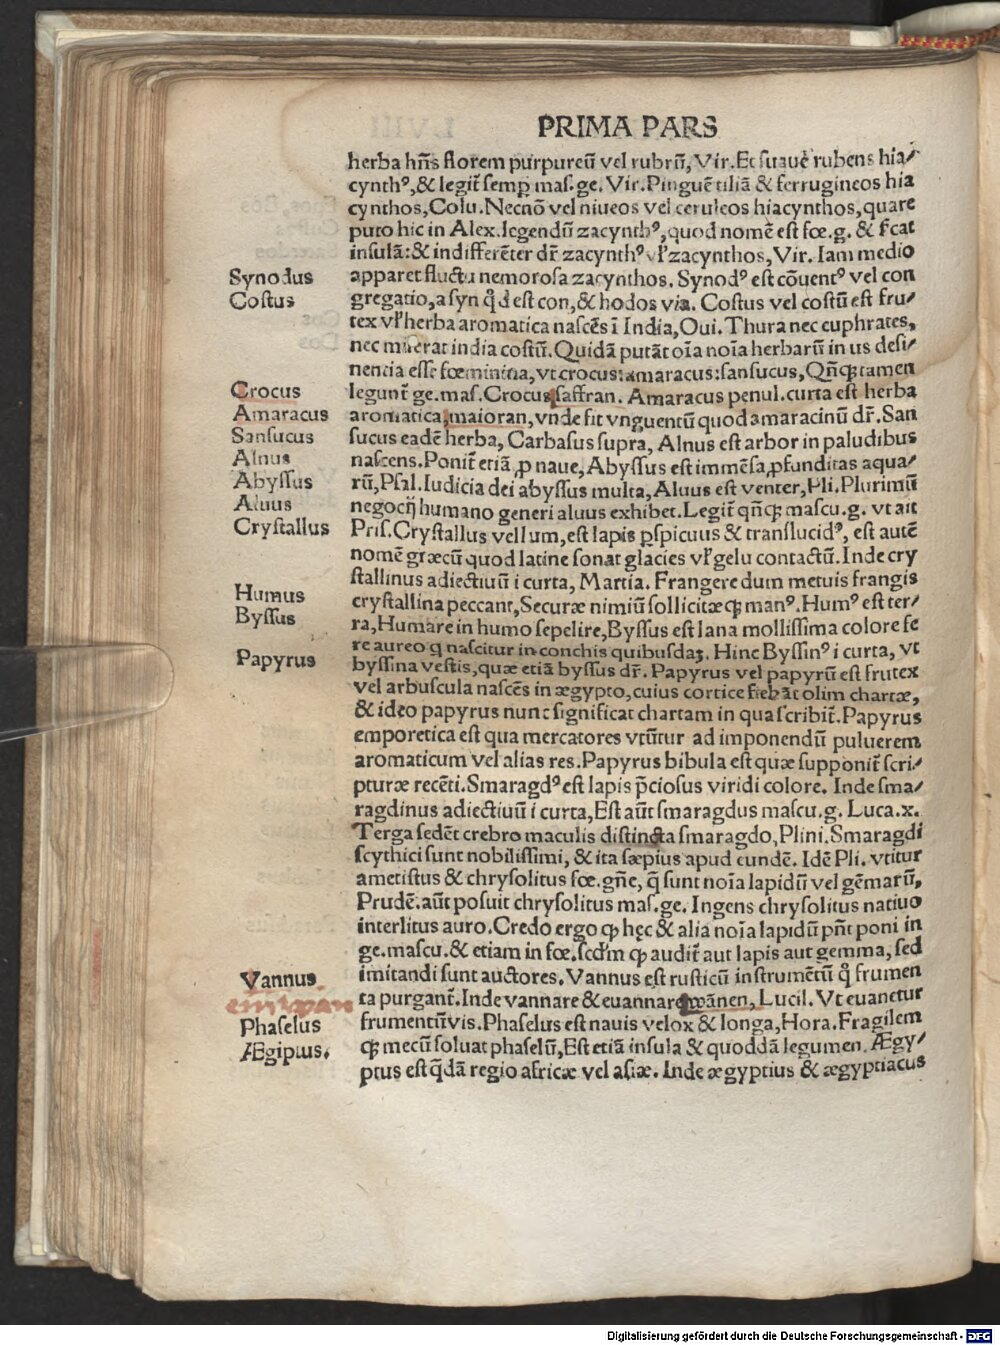 PRIMA PARS
herba hn̄s florem purpureū vel rubrū, Vir. Et suaue rubens hia⸗
cynthꝰ, & legit̄ semp mas. ge. Vir. Pinguē tiliā & ferrugineos hia
cynthos, Colu. Necnō vel niueos vel ceruleos hiacynthos, quare
puto hic in Alex. legendū zacynthꝰ, quod nomē est fœ. g. & s̄cat
insulā: & indifferēter dr̄ zacynthꝰ vł zacynthos, Vir. Iam medio
Synodus apparet fluctu nemorosa zacynthos. Synodꝰ est cōuentꝰ vel con
Costus gregatio, a syn qd̄ est con, & hodos via. Costus vel costū est fru⸗
tex vł herba aromatica nascēs ī India, Oui. Thura nec euphrates,
nec miserat india costū. Quidā putāt oīa noīa herbarū in us desi⸗
nentia esse fœminina, vt crocus: amaracus: sansucus, Qn̄qꝫ tamen
Crocus legunt̄ ge. mas. Crocus saffran. Amaracus penul. curta est herba
Amaracus aromatica, maioran, vnde fit vnguentū quod amaracinū dr̄. San
Sansucus sucus eadē herba, Carbasus supra, Alnus est arbor in paludibus
Alnus nascens. Ponit̄ etiā ꝓ naue, Abyssus est immēsa ꝓfunditas aqua⸗
Abyssus rū, Psal. Iudicia dei abyssus multa, Aluus est venter, Pli. Plurimū
Aluus negocij humano generi aluus exhibet. Legit̄ qn̄qꝫ mascu. g. vt ait
Crystallus Pris. Crystallus vel lum, est lapis ꝑspicuus & translucidꝰ, est autē
nomē græcū quod latine sonat glacies vł gelu contactū. Inde cry
stallinus adiectiuū i curta, Martia. Frangere dum metuis frangis
Humus crystallina peccant, Securæ nimiū sollicitæqꝫ manꝰ. Humꝰ est ter⸗
Byssus ra, Humare in humo sepelire, Byssus est lana mollissima colore fe
re aureo q̄ nascitur in conchis quibusdaꝫ. Hinc Byssinꝰ i curta, vt
Papyrus byssina vestis, quæ etiā byssus dr̄. Papyrus vel papyrū est frutex
vel arbuscula nascēs in ægypto, cuius cortice fiebāt olim chartæ,
& ideo papyrus nunc significat chartam in qua scribit̄. Papyrus
emporetica est qua mercatores vtūtur ad imponendū puluerem
aromaticum vel alias res. Papyrus bibula est quæ supponit̄ scri⸗
pturæ recēti. Smaragdꝰ est lapis p̄ciosus viridi colore. Inde sma⸗
ragdinus adiectiuū i curta, Est aūt smaragdus mascu. g. Luca. x.
Terga sedēt crebro maculis distincta smaragdo, Plini. Smaragdi
scythici sunt nobilissimi, & ita sæpius apud eundē. Idē Pli. vtitur
ametistus & chrysolitus fœ. gn̄e, q̄ sunt noīa lapidū vel gēmarū,
Prudē. aūt posuit chrysolitus mas. ge. Ingens chrysolitus natiuo
interlitus auro. Credo ergo qꝫ hęc & alia noīa lapidū pn̄t poni in
ge. mascu. & etiam in fœ. scd̄m qꝫ audit̄ aut lapis aut gemma, sed
Vannus imitandi sunt auctores. Vannus est rusticū instrumētū q̊ frumen
ta purgant̄. Inde vannare & euannare wānen, Lucil. Vt euanetur
Phaselus frumentū vis. Phaselus est nauis velox & longa, Hora. Fragilem
Ægiptus. qꝫ mecū soluat phaselū, Est etiā insula & quoddā legumen. Ægy⸗
ptus est q̄dā regio africæ vel asiæ. Inde ægyptius & ægyptiacus
Digitalisierung gefördert durch die Deutsche Forschungsgemeinschaft - DFG